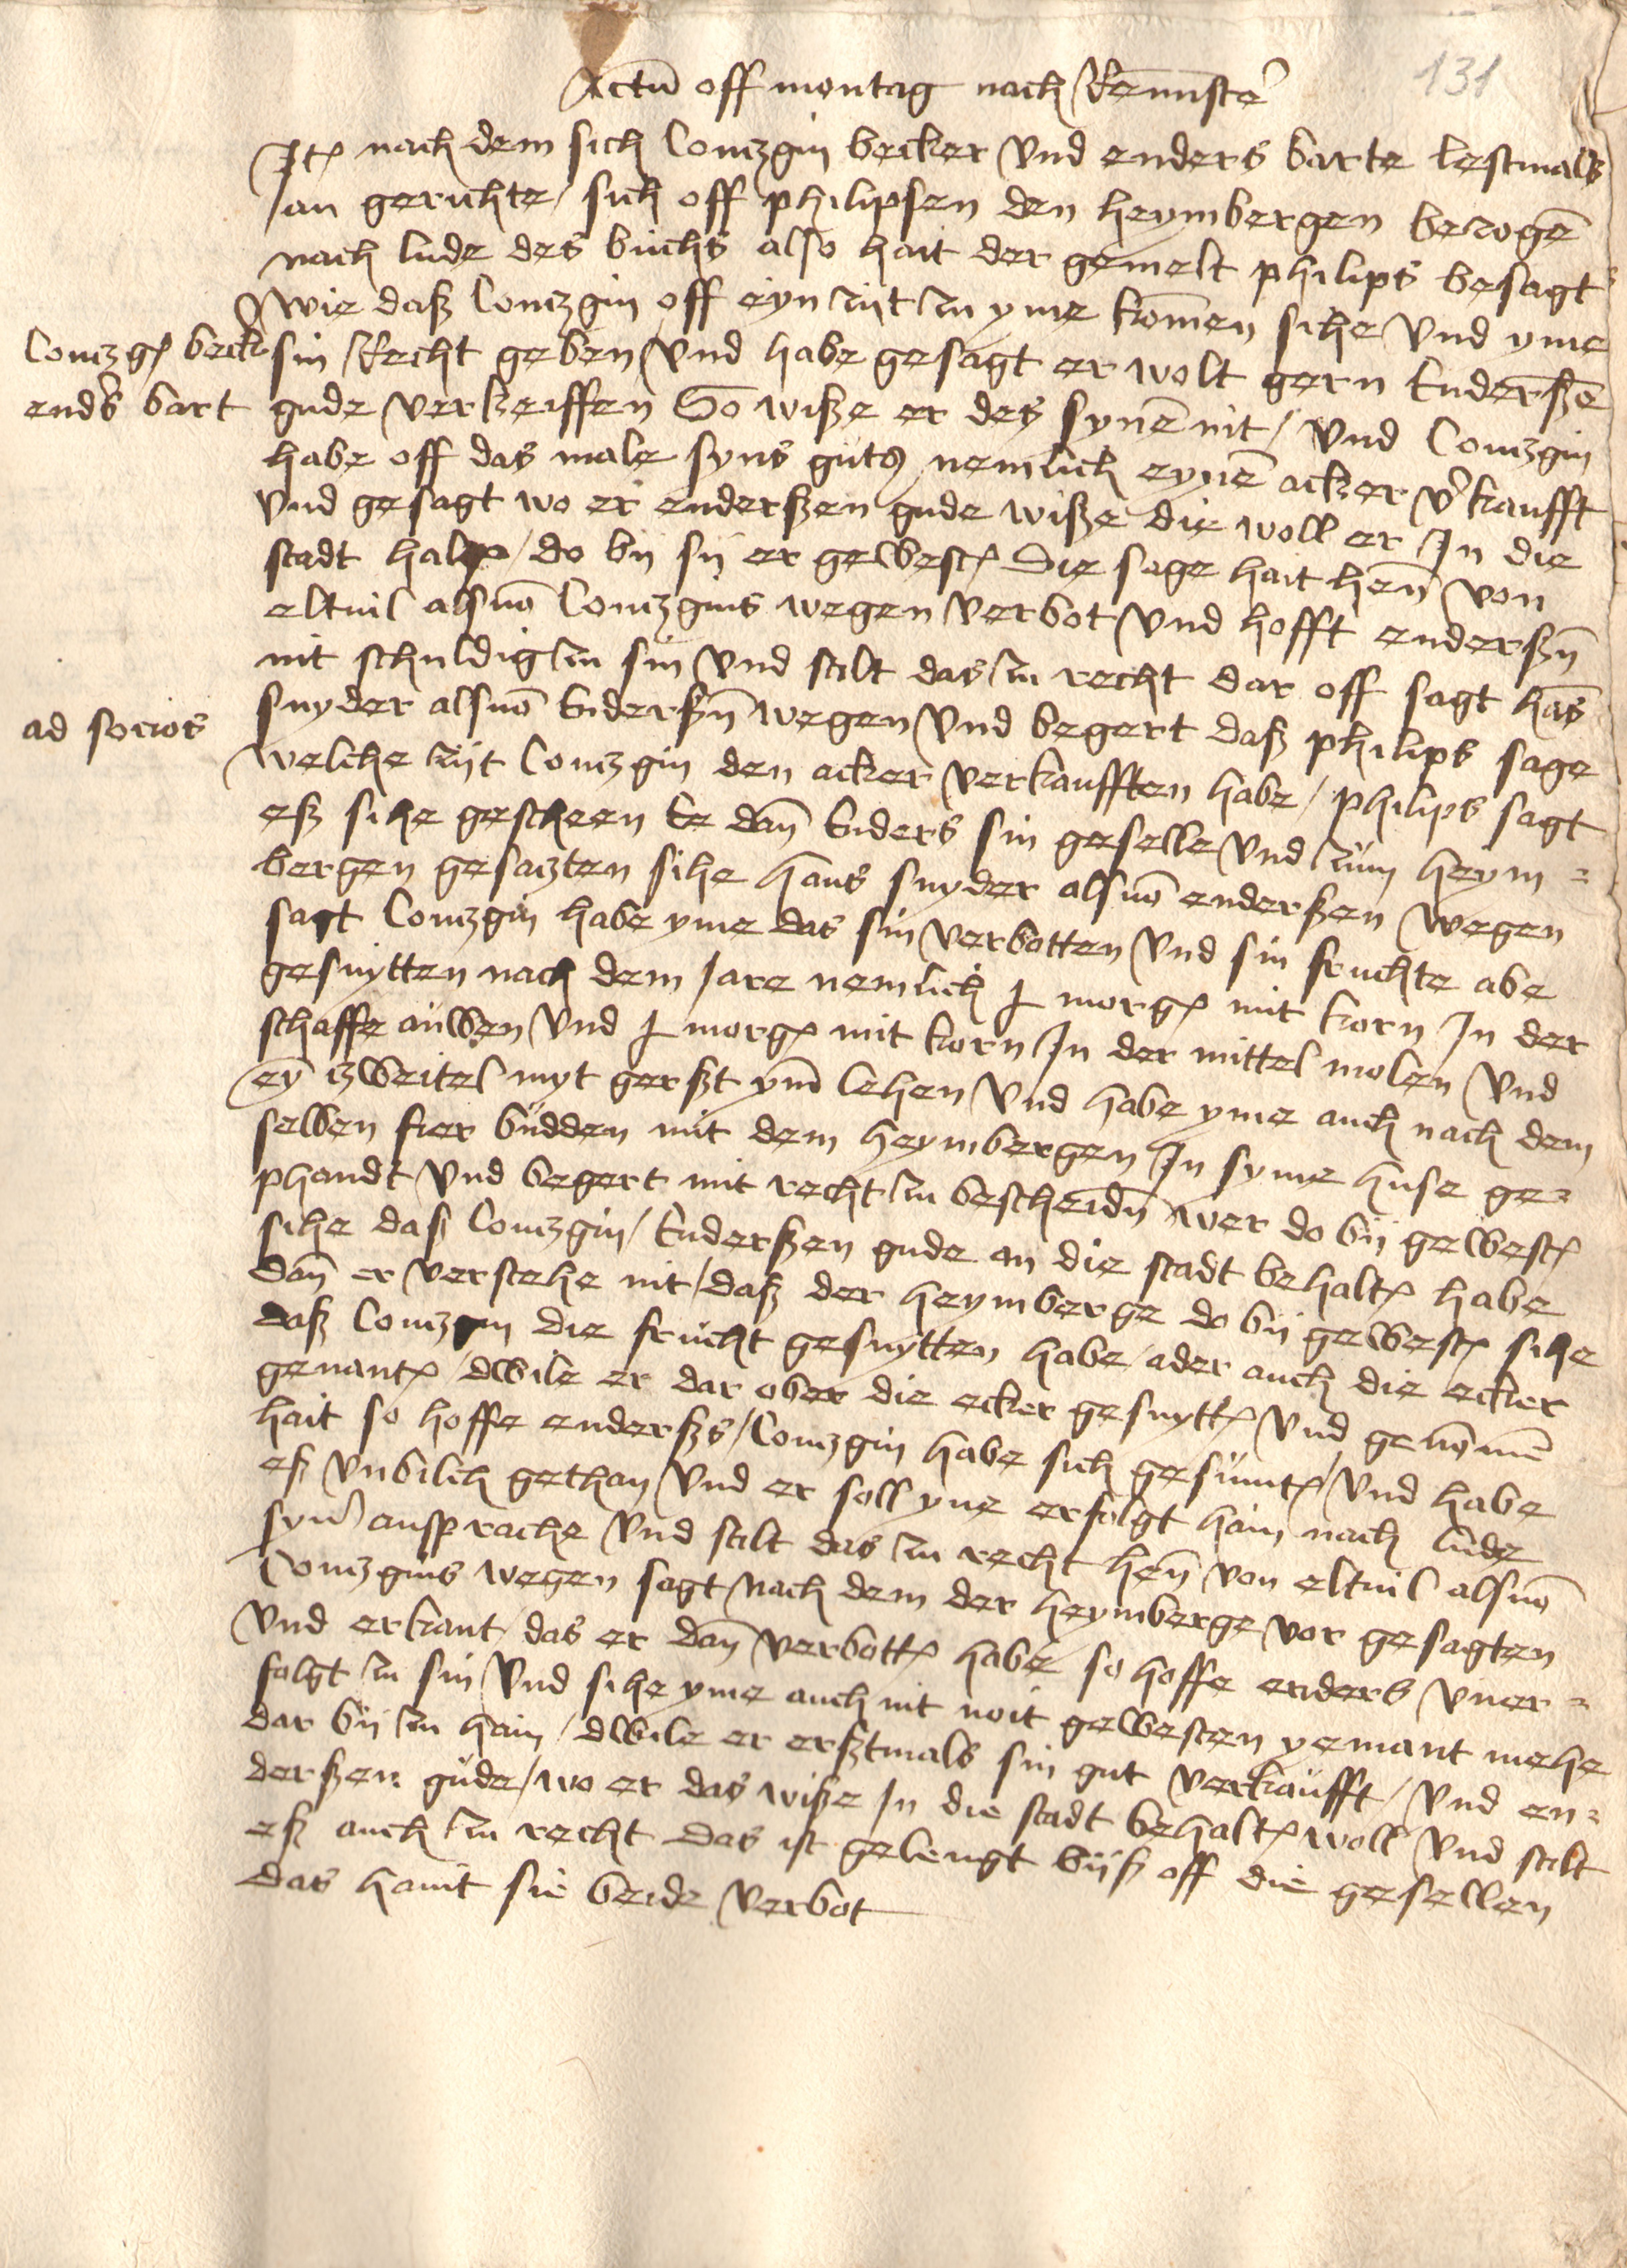 131
Actu off montag nach Reminiscē
Itē nach dem sich Contzgin becker Vnd enders barte lestmals
an gerichte / sich off philipsen den heymbergen bezogē
nach lude des buchs also hait der gemelt philips besagt
wie daß Contzgin off eyn zijt zu yme komen sihe Vnd yme
sin Recht geben Vnd habe gesagt er wolt gern Enderßē
Contzgē beck
gude verkeiffen So wiße er des synē nit / Vnd Contzgin
enders bart
habe off das male syns guts nemlich eynē acker v'kaufft
Vnd gesagt wo er enderßen gude wiße die woll er In die
stadt hal / do bij sij er gewest Die sage hait hen von
eltuil als von Contzgins wegen verbot Vnd hofft enderßn
nit schuldig zu sin Vnd stelt das zu recht dar off sagt hās
snyder als von Enderßn wegen Vnd begert daß philips sage
ad socios
welche zijt Contzgin den acker verkaufften habe / philips sagt
eß sihe gescheen Ee dan Enders sin geselle Vnd zum heym =
bergen gesatzten sihe hans snyder als von enderßen wegen
sagt Contzgin habe yme das sin verbotten Vnd sin fruchte abe
gesnytten nach dem Jare nemlich j morgē mit korn In der
schaffe auwen Vnd j morgē mit korn In der mittel molen Vnd
ey zweitel myt gerßt ym lehen Vnd habe yme auch nach dem
selben fier budden mit dem heymbergen In syme huse ge =
phandt Vnd begert mit recht zu bescheidn wer do bij gewest
sihe das Contzgin / Enderßen gude an die stadt behaltē habe
dan er verstehe nit / daß der heymberge do bij gewest sihe
daß Contzgin die frucht gesnytten habe / ader auch die ecker
genantē / dwile er dar ober die ecker gesnyttē Vnd genomē
hait so hoffe enderßs / Contzgin habe sich gesumtē / Vnd habe
eß vnbilch gethan Vnd er soll yne erfolgt hain nach lude
syn' ansprache Vnd stelt das zu recht hen von eltuil als von
Contzgins wegen sagt nach dem der heymberge vor gesagten
Vnd erkant / das er dan verbottē habe so hoffe enders vner =
folgt zu sin Vnd sihe yme auch nit noit gewesten yemant mehe
dar bij zu hain / dwile er erßtmals sin gut verkaufft / Vnd en =
derßen gude / wo er das wiße In die stadt behaltē woll Vnd stelt
eß auch zu recht das ist gelengt bijß off die gesellen
das haint sie beide verbot